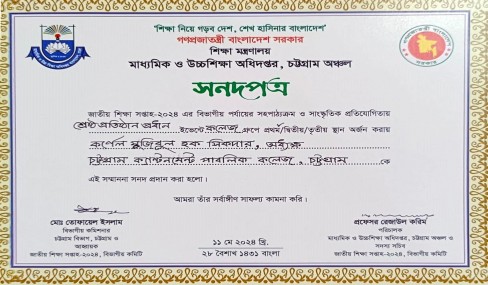 'শিক্ষা নিয়ে গড়ব দেশ, শেখ হাসিনার বাংলাদেশ'
গণপ্রজাতন্ত্রী বাংলাদেশ সরকার
শিক্ষা মন্ত্রণালয়
মাধ্যমিক ও উচ্চশিক্ষা অধিদপ্তর, চট্টগ্রাম অঞ্চল
সনদপত্র
জাতীয় শিক্ষা সপ্তাহ-২০২৪ এর বিভাগীয় পর্যায়ের সহপাঠ্যক্রম ও সাংস্কৃতিক প্রতিযোগিতায়
শ্রেষ্ঠ প্রতিষ্ঠান প্রধান ইভেন্টে কলেজ গ্রুপে প্রথম/দ্বিতীয়/তৃতীয় স্থান অর্জন করায়
কর্ণেল মুজিবুল হক সিকদার, অধ্যক্ষ
চট্টগ্রাম ক্যান্টনমেন্ট পাবলিক কলেজ, চট্টগ্রাম কে
এই সম্মাননা সনদ প্রদান করা হলো।
আমরা তাঁর সর্বাঙ্গীণ সাফল্য কামনা করি।
মোঃ তোফায়েল ইসলাম
বিভাগীয় কমিশনার
চট্টগ্রাম বিভাগ, চট্টগ্রাম ও
আহ্বায়ক
জাতীয় শিক্ষা সপ্তাহ-২০২৪, বিভাগীয় কমিটি
১১ মে ২০২৪ খ্রি.
২৮ বৈশাখ ১৪৩১ বাংলা
প্রফেসর রেজাউল করিম
পরিচালক
মাধ্যমিক ও উচ্চশিক্ষা অধিদপ্তর, চট্টগ্রাম অঞ্চল ও
সদস্য সচিব
জাতীয় শিক্ষা সপ্তাহ-২০২৪, বিভাগীয় কমিটি